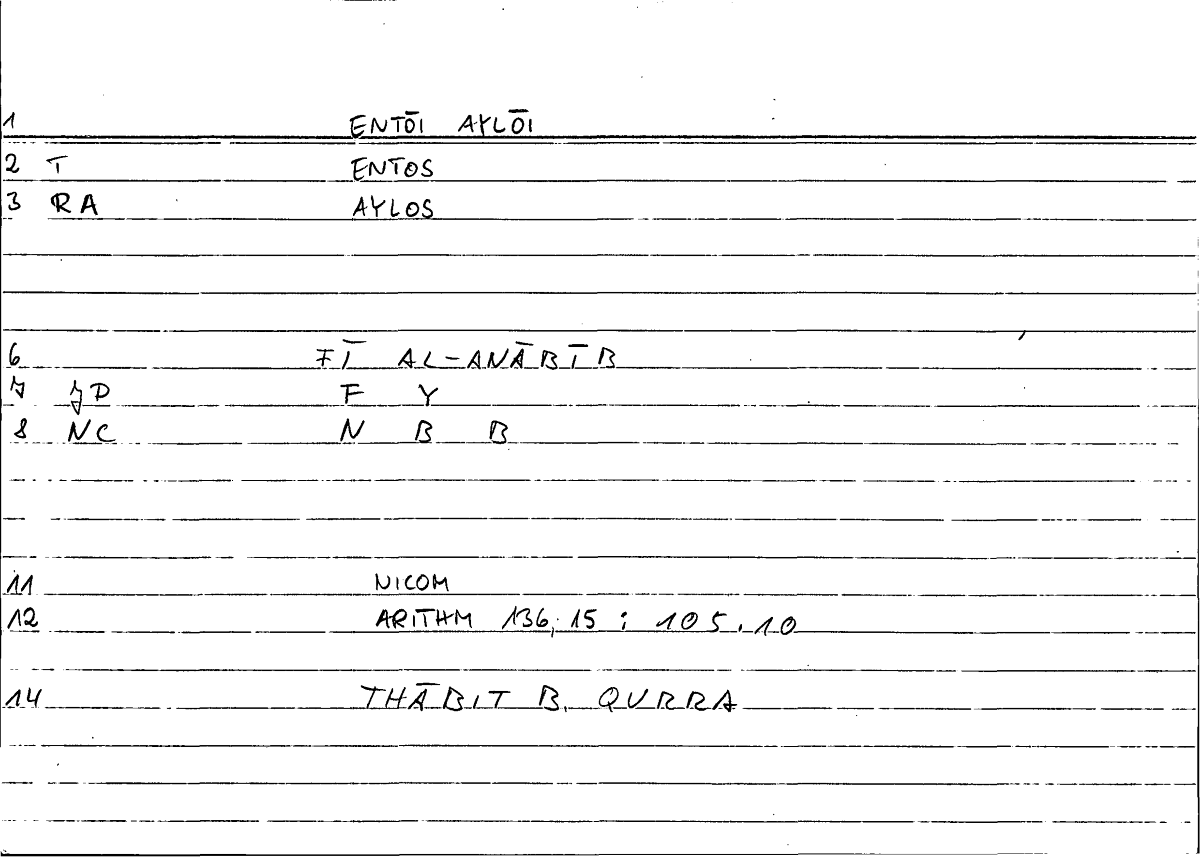 1 ENTŌI AYLŌI
2 T ENTOS
3 RA AYLOS
6 FĪ AL-ANĀBĪB
7 JD F Y
8 NC N B B
11 NICOM
12 ARITHM 136,15 : 105.10
14 THĀBIT B. QURRA